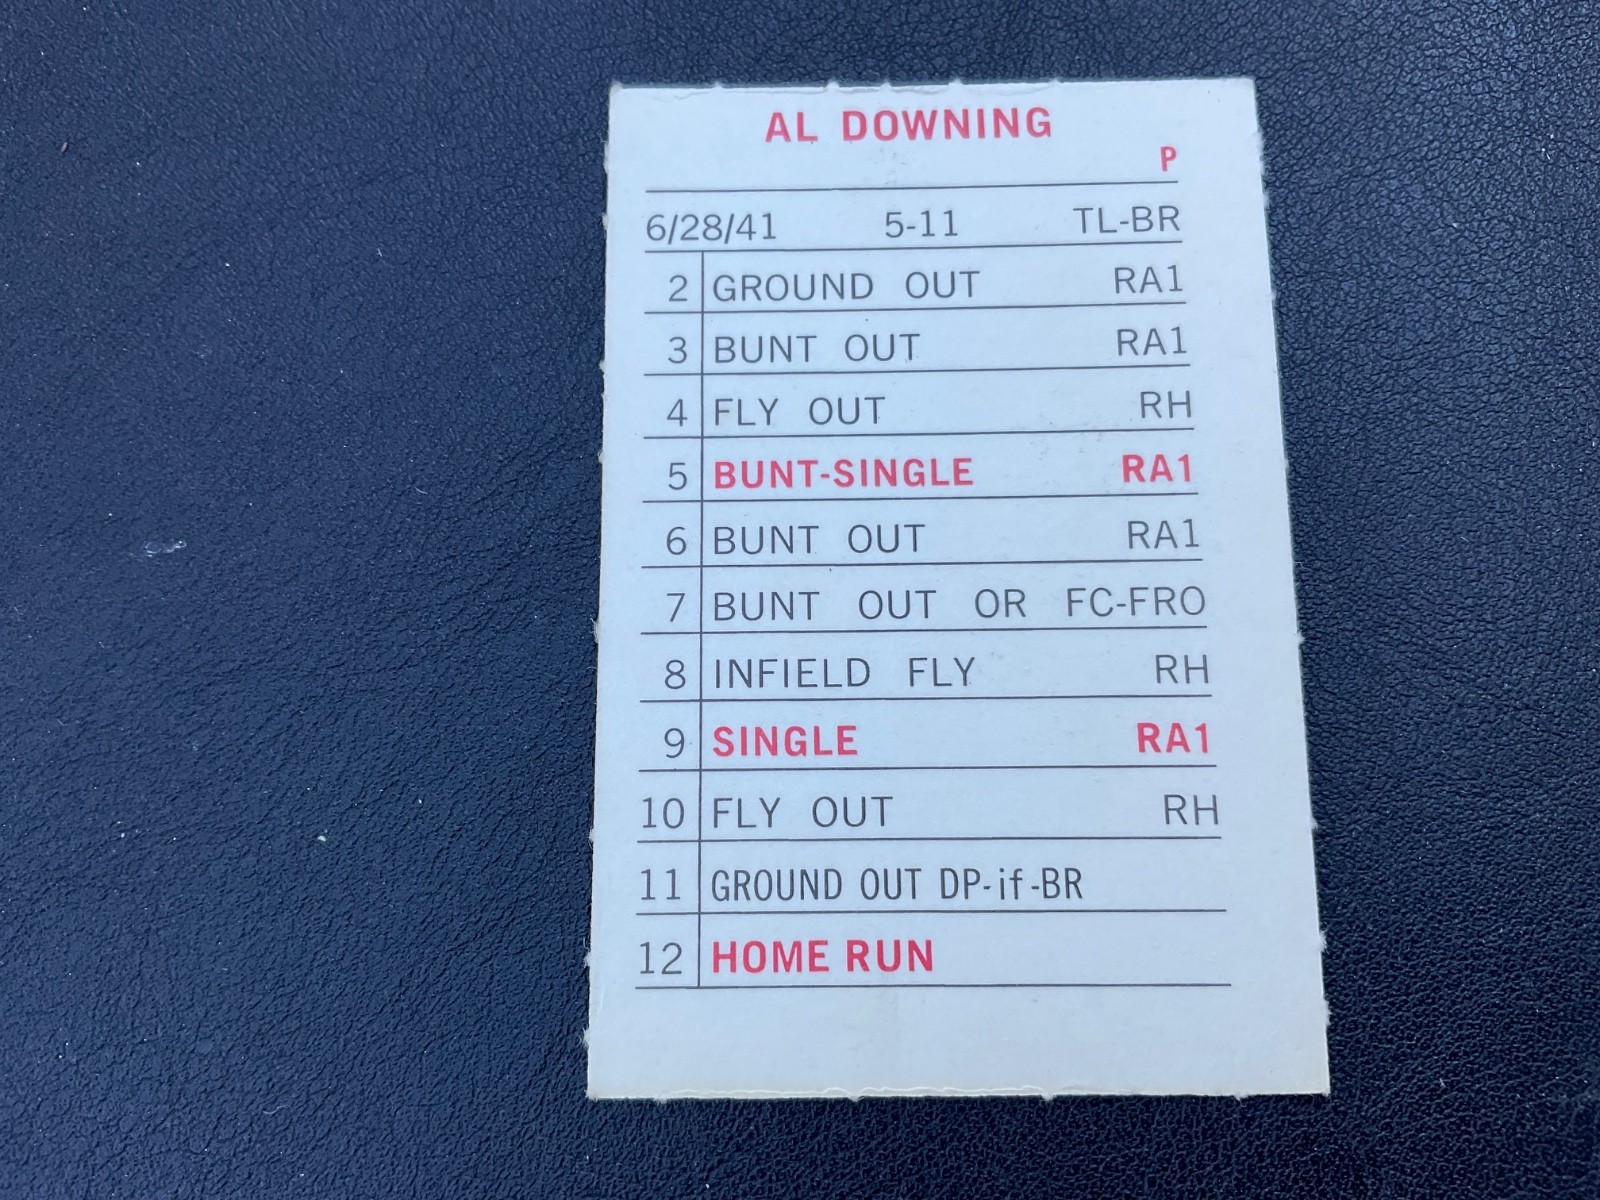 AL DOWNING
P
6/28/41 5-11 TL-BR
2 GROUND OUT RA1
3 BUNT OUT RA1
4 FLY OUT RH
5 BUNT-SINGLE RA1
6 BUNT OUT RA1
7 BUNT OUT OR FC-FRO
8 INFIELD FLY RH
9 SINGLE RA1
10 FLY OUT RH
11 GROUND OUT DP-if-BR
12 HOME RUN